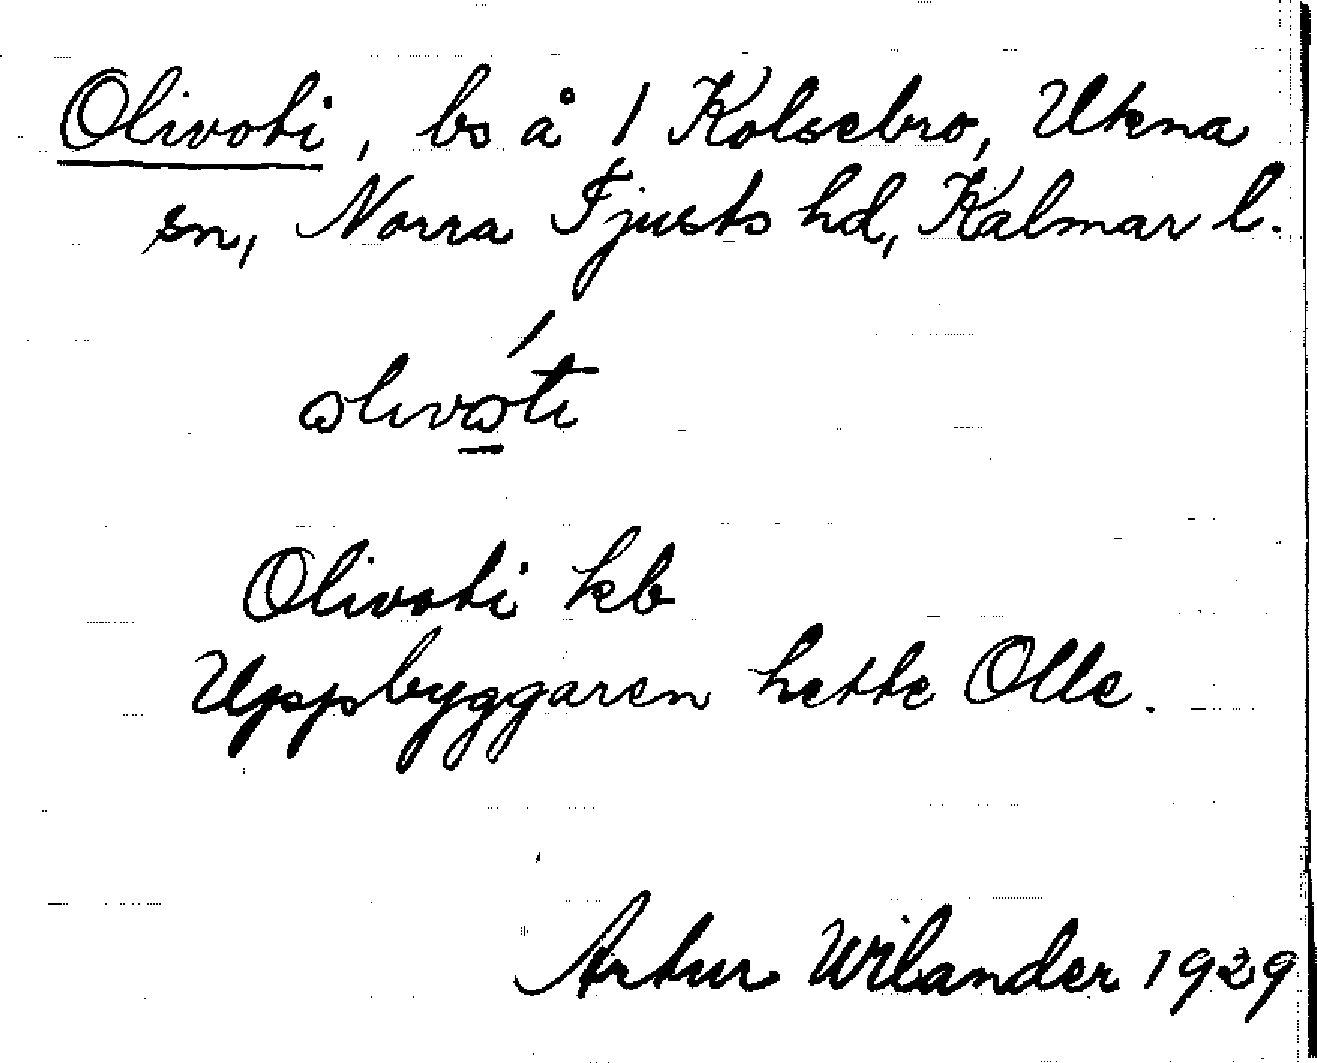 Olivoti, bs å 1 Kolsebro, Ukna
sn, Norra Tjusts hd, Kalmar l.
Olivoti kb
Uppbyggaren hette Olle.
Artur Wilander 1929